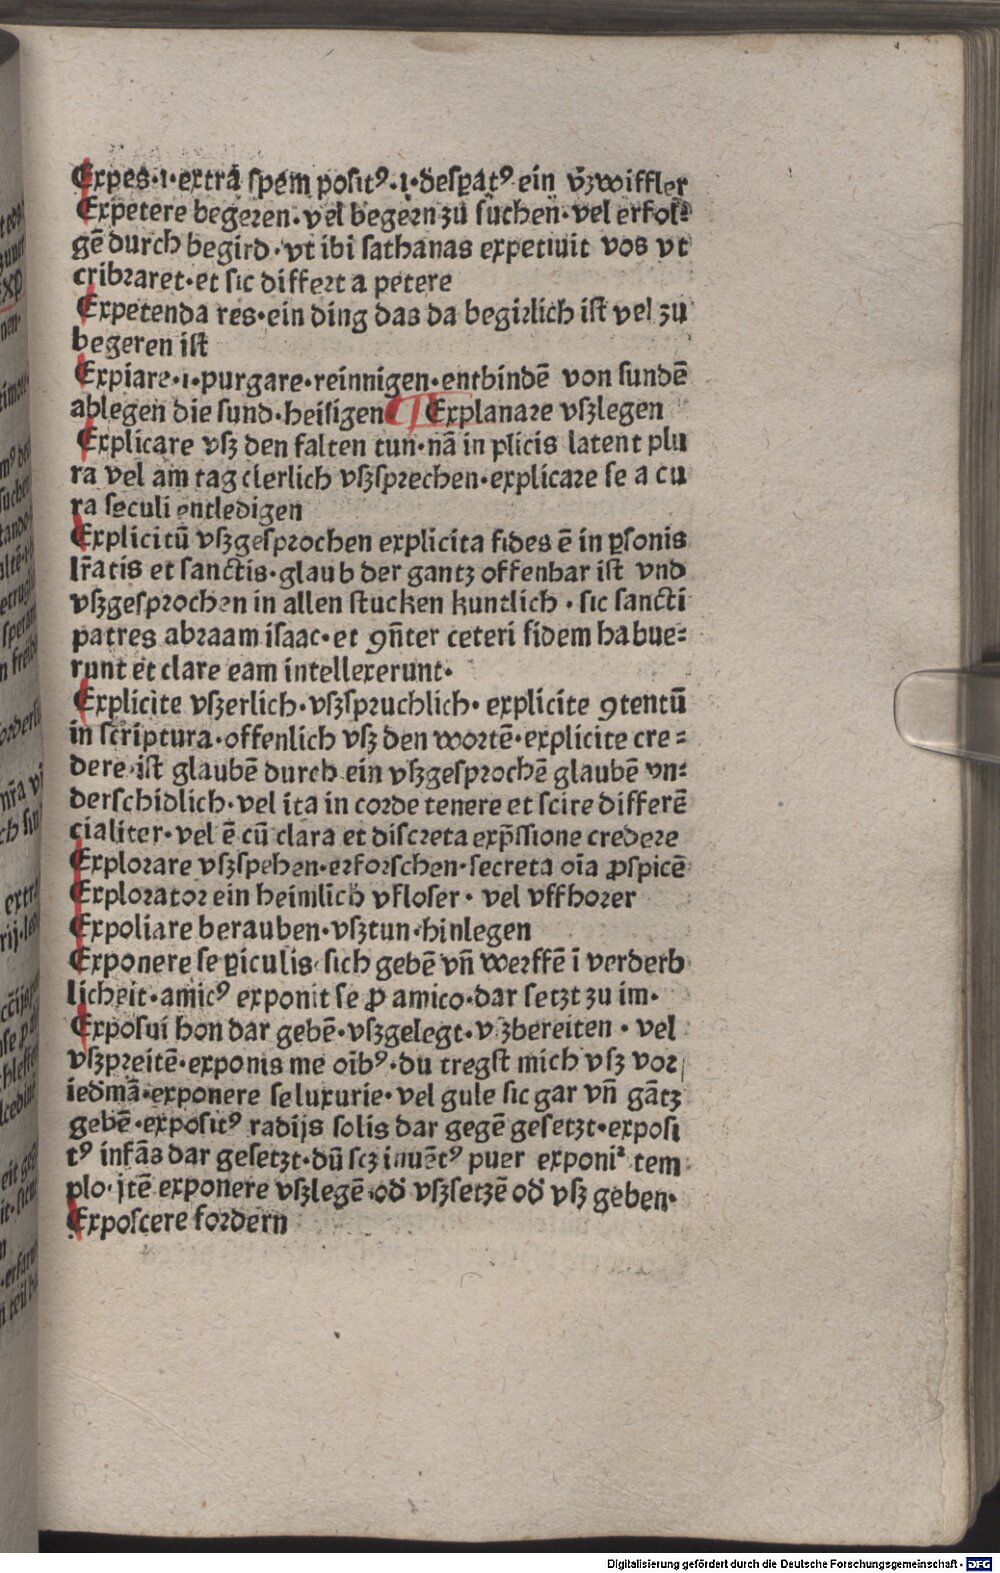 Expes·i·extra spem positꝰ·i·despatꝰ ein v̄zwiffler
Expetere begeren·vel begern zu suchen·vel erfol⸗
gē durch begird·vt ibi sathanas expetiuit vos vt
cribraret·et sic differt a petere
Expetenda res·ein ding das da begirlich ist vel zu
begeren ist
Expiare·i·purgare·reinnigen·entbindē von sundē
ablegen die sund·heiligen ¶ Explanare vſzlegen
Explicare vſz den falten tun·nā in plicis latent plu
ra vel am tag clerlich vſzsprechen·explicare se a cu
ra seculi entledigen
Explicitū vſzgesprochen explicita fides ē in ꝑsonis
lr̄atis et sanctis·glaub der gantz offenbar ist vnd
vſzgesprochen in allen stucken kuntlich·sic sancti
patres abraam isaac·et ꝯn̄ter ceteri fidem habue⸗
runt et clare eam intellexerunt·
Explicite vſzerlich·vſzspruchlich·explicite ꝯtentū
in scriptura·offenlich vſz den wortē·explicite cre⸗
dere·ist glaubē durch ein vſzgesprochē glaubē vn⸗
derschidlich·vel ita in corde tenere et scire differē
cialiter·vel ē cū clara et discreta exp̄ssione credere
Explorare vſzspehen·erforschen·secreta oīa ꝓspicē
Explorator ein heimlich vfloser·vel vffhorer
Expoliare berauben·vſztun·hinlegen
Exponere se ꝑiculis·sich gebē vn̄ werffē ī verderb
licheit·amicꝰ exponit se ꝓ amico·dar setzt zu im·
Exposui hon dar gebē·vſzgelegt·v zbereiten·vel
vſzpreitē·exponis me oībꝰ·du tregst mich vſz vor
iedmā·exponere se luxurie·vel gule sic gar vn̄ gātz
gebē·expositꝰ radijs solis dar gegē gesetzt·exposi
tꝰ infās dar gesetzt·dū scz inuētꝰ puer exponiᷣ tem
plo·jtē exponere vſzlegē·od̓ vſzsetzē od̓ vſz geben·
Exposcere fordern
Digitalisierung gefördert durch die Deutsche Forschungsgemeinschaft - DFG